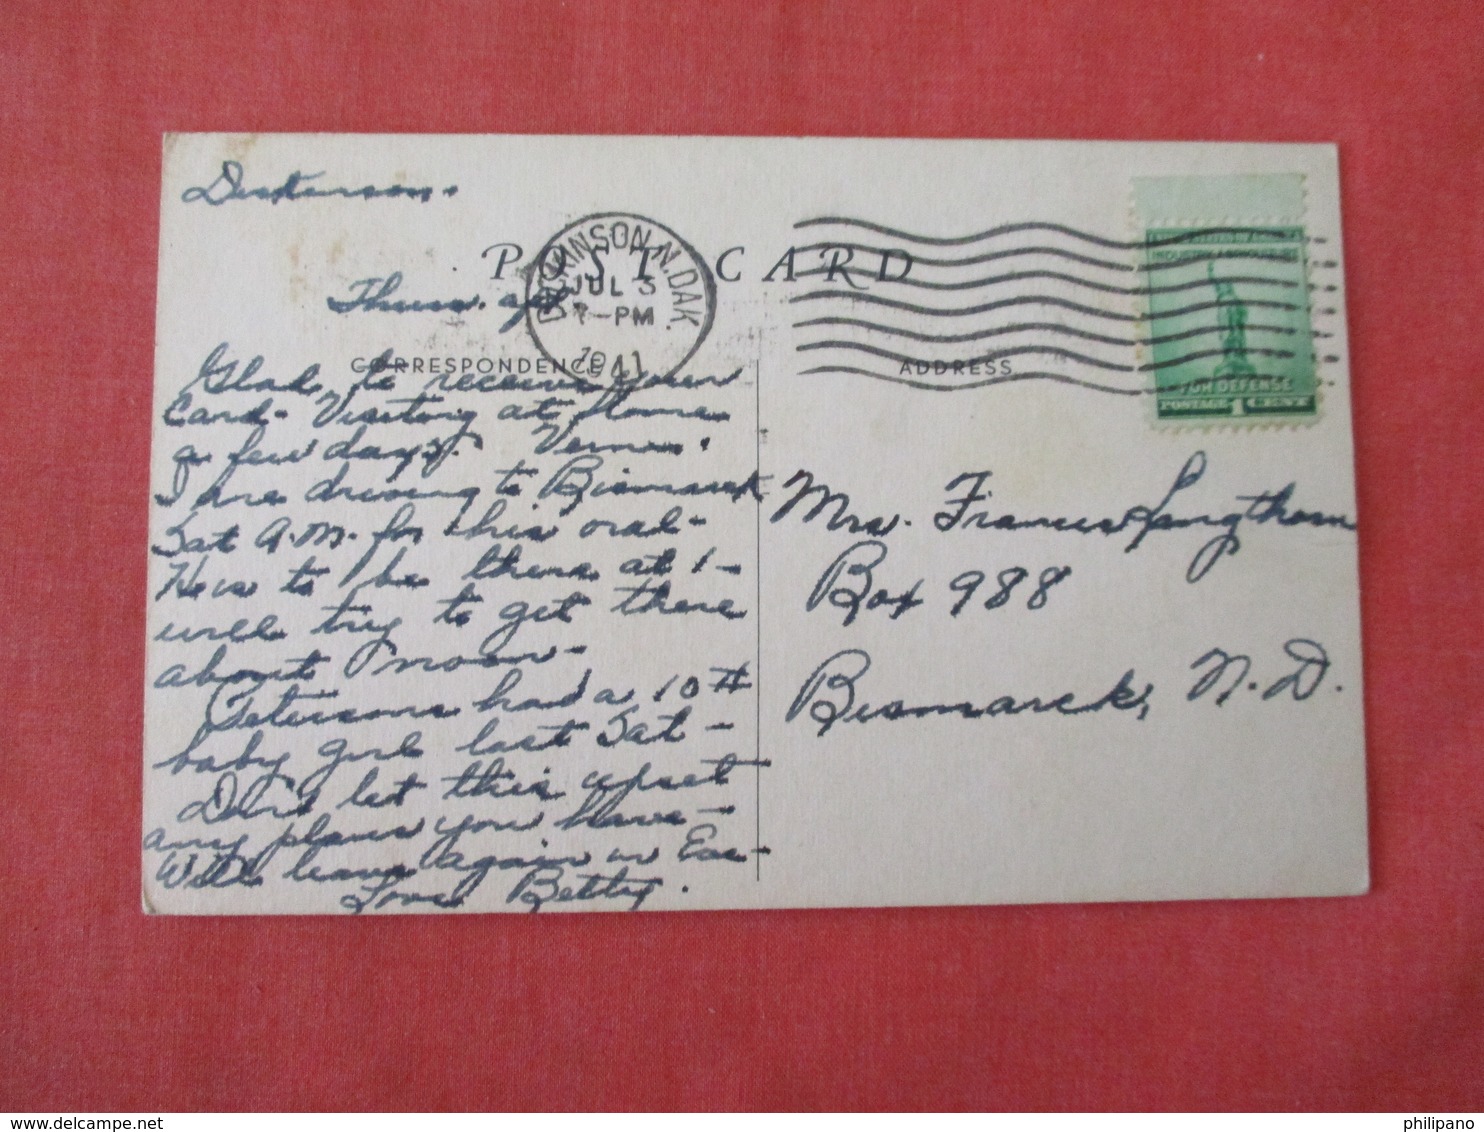 Dickinson -
POST CARD
DICKINSON, N. DAK.
JUL 3
7-PM
1941
Thurs.
CORRESPONDENCE
ADDRESS
UNITED STATES OF AMERICA
INDUSTRY AGRICULTURE
FOR DEFENSE
POSTAGE 1 CENT
Glad to receive your
Card - Visiting at home
a few days. Verne
I are driving to Bismarck
Sat A.M. for his oral -
He is to be there at 1 -
will try to get there
about noon -
Petersons had a 10#
baby girl last Sat -
Don't let this upset
any plans you have -
Will leave again in
Love Betty.
Mrs. Francis Langthorn
Box 988
Bismarck, N.D.
philipano